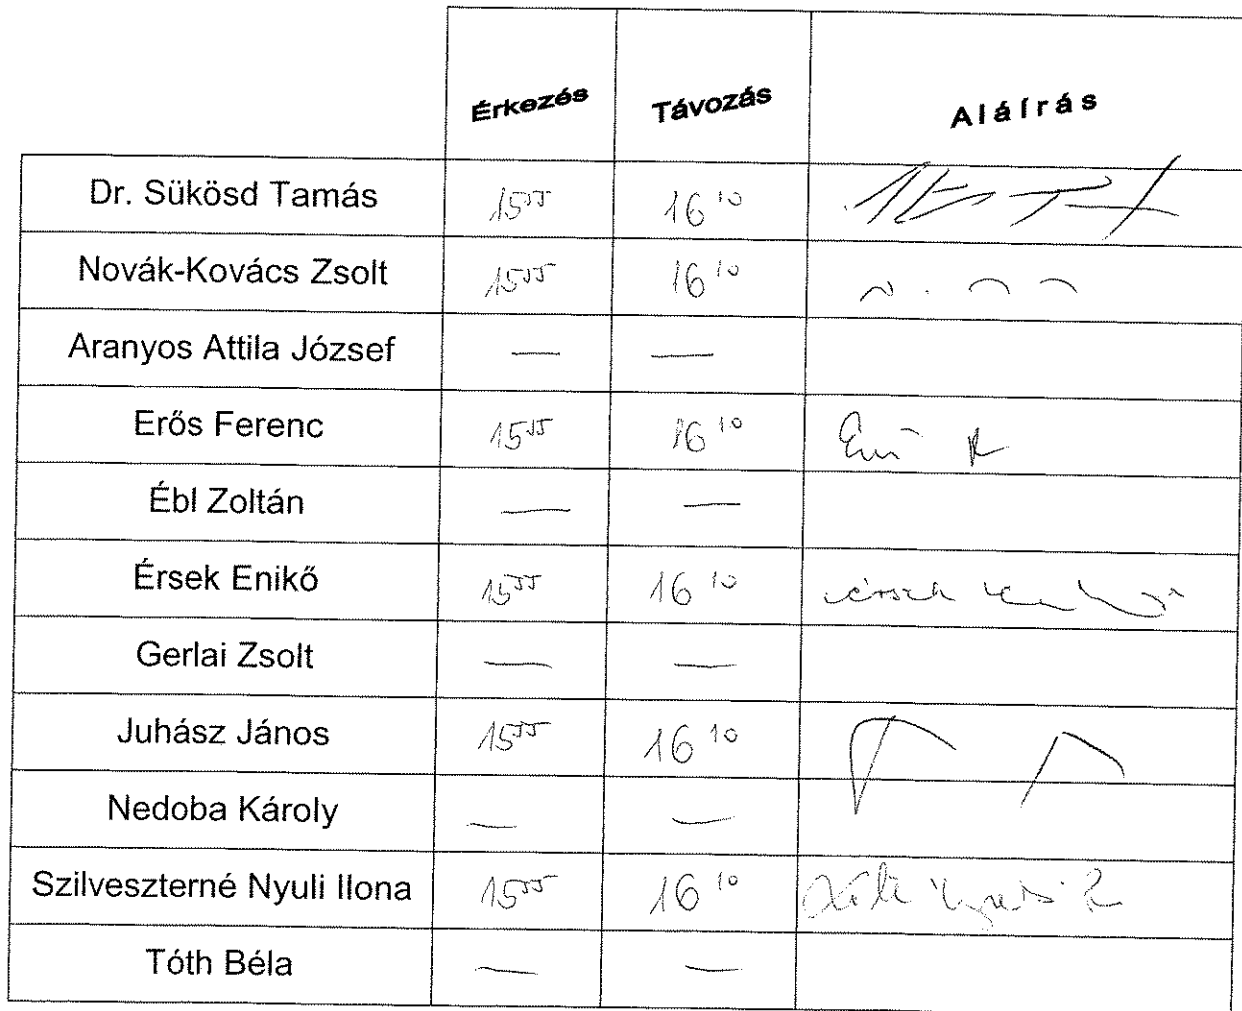 Érkezés Távozás Aláírás
Dr. Sükösd Tamás 15⁵⁵ 16¹⁰
Novák-Kovács Zsolt 15⁵⁵ 16¹⁰
Aranyos Attila József — —
Erős Ferenc 15⁵⁵ 16¹⁰
Ébl Zoltán — —
Érsek Enikő 15⁵⁵ 16¹⁰ Érsek Enikő
Gerlai Zsolt — —
Juhász János 15⁵⁵ 16¹⁰
Nedoba Károly — —
Szilveszterné Nyuli Ilona 15⁵⁵ 16¹⁰
Tóth Béla — —